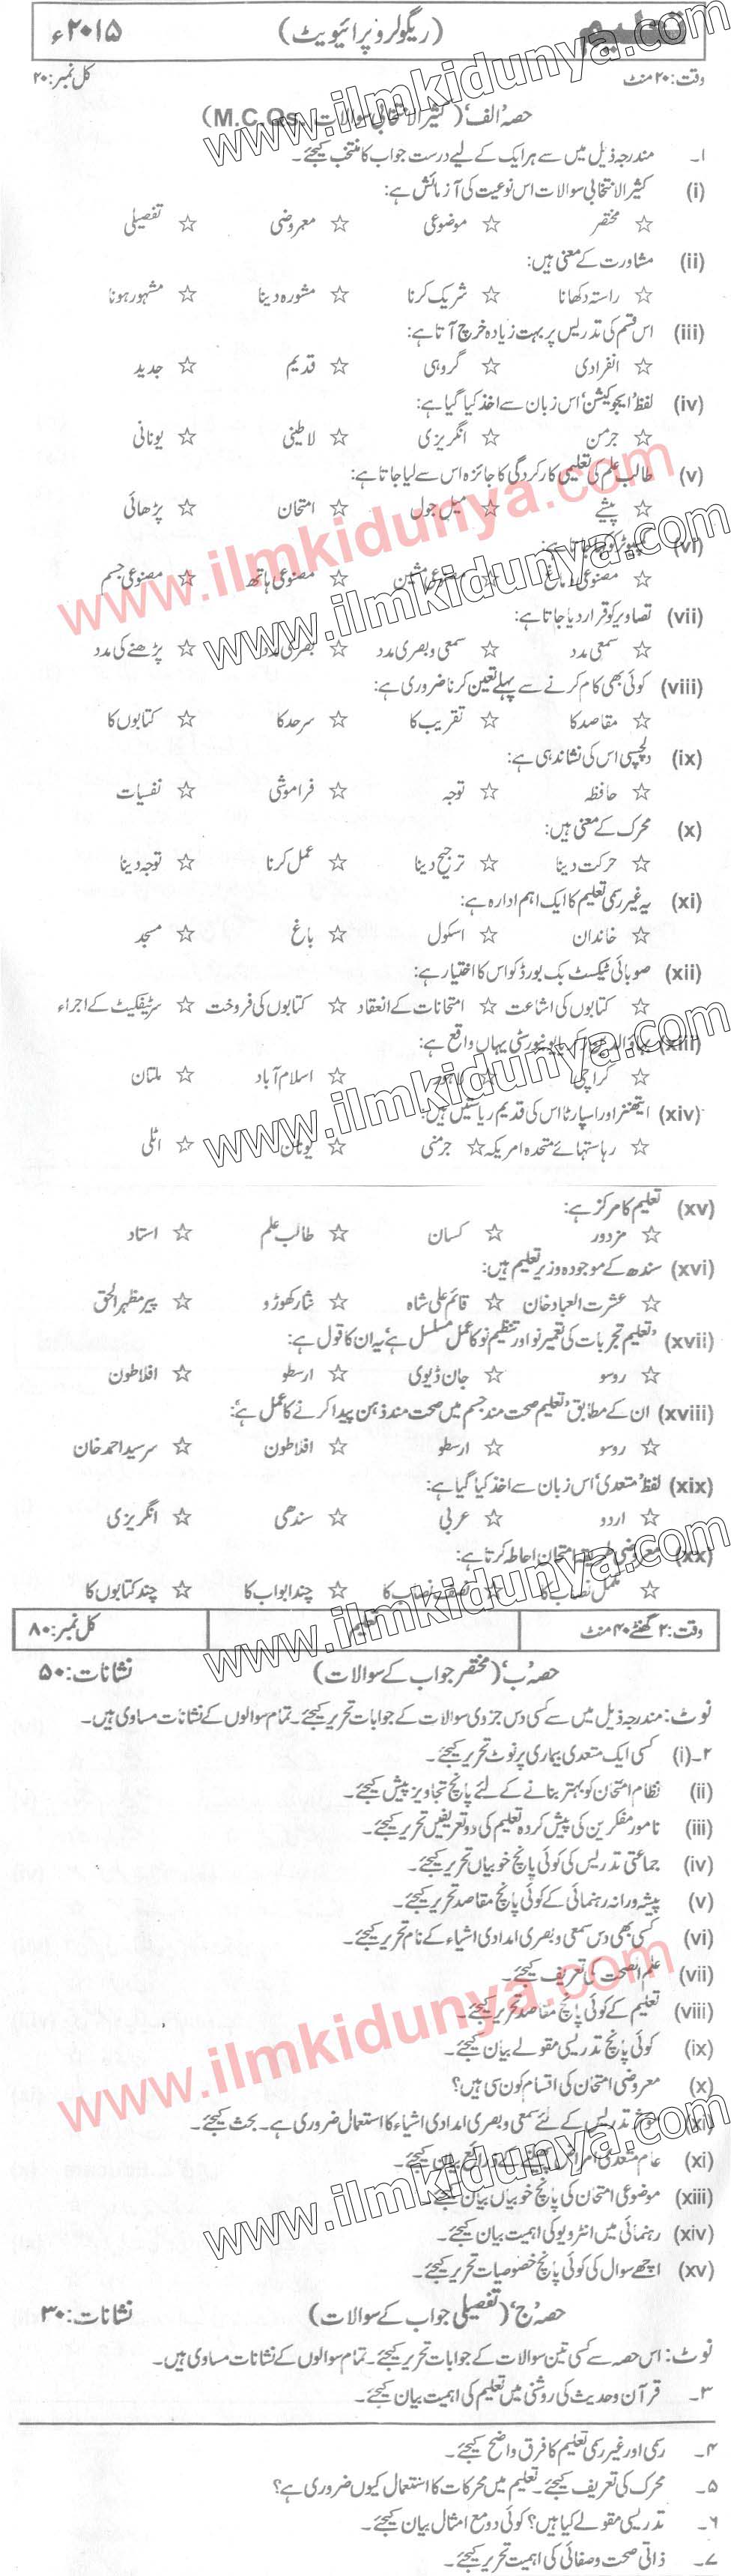 تعلیم (ریگولر و پرائیویٹ) ۲۰۱۵ء
وقت: ۲۰ منٹ کل نمبر: ۲۰
حصہ 'الف' (کثیر الانتخابی سوالات M.C.Qs.)
۱۔ مندرجہ ذیل میں سے ہر ایک کے لیے درست جواب کا منتخب کیجئے۔
(i) کثیر الانتخابی سوالات اس نوعیت کی آزمائش ہے:
☆ مختصر ☆ موضوعی ☆ معروضی ☆ تفصیلی
(ii) مشاورت کے معنی ہیں:
☆ راستہ دکھانا ☆ شریک کرنا ☆ مشورہ دینا ☆ مشہور ہونا
(iii) اس قسم کی تدریس پر بہت زیادہ خرچ آتا ہے:
☆ انفرادی ☆ گروہی ☆ قدیم ☆ جدید
(iv) لفظ 'ایجوکیشن' اس زبان سے اخذ کیا گیا ہے:
☆ جرمن ☆ انگریزی ☆ لاطینی ☆ یونانی
(v) طالب علم کی تعلیمی کارکردگی کا جائزہ اس سے لیا جاتا ہے:
☆ پیشے ☆ میل جول ☆ امتحان ☆ پڑھائی
(vi) کمپیوٹر کو کہا جاتا ہے:
☆ مصنوعی دماغ ☆ مصنوعی مشین ☆ مصنوعی ہاتھ ☆ مصنوعی جسم
(vii) تصاویر کو قرار دیا جاتا ہے:
☆ سمعی مدد ☆ سمعی و بصری مدد ☆ بصری مدد ☆ پڑھنے کی مدد
(viii) کوئی بھی کام کرنے سے پہلے تعین کرنا ضروری ہے:
☆ مقاصد کا ☆ تقریب کا ☆ سرحد کا ☆ کتابوں کا
(ix) دلچسپی اس کی نشاندہی ہے:
☆ حافظہ ☆ توجہ ☆ فراموشی ☆ نفسیات
(x) محرک کے معنی ہیں:
☆ حرکت دینا ☆ ترجیح دینا ☆ عمل کرنا ☆ توجہ دینا
(xi) یہ غیر رسمی تعلیم کا ایک اہم ادارہ ہے:
☆ خاندان ☆ اسکول ☆ باغ ☆ مسجد
(xii) صوبائی ٹیکسٹ بک بورڈ کو اس کا اختیار ہے:
☆ کتابوں کی اشاعت ☆ امتحانات کے انعقاد ☆ کتابوں کی فروخت ☆ سرٹیفکیٹ کے اجراء
(xiii) بہاؤالدین زکریا یونیورسٹی یہاں واقع ہے:
☆ کراچی ☆ لاہور ☆ اسلام آباد ☆ ملتان
(xiv) ایتھنز اور اسپارٹا اس کی قدیم ریاستیں ہیں:
☆ ریاستہائے متحدہ امریکہ ☆ جرمنی ☆ یونان ☆ اٹلی
(xv) تعلیم کا مرکز ہے:
☆ مزدور ☆ کسان ☆ طالب علم ☆ استاد
(xvi) سندھ کے موجودہ وزیر تعلیم ہیں:
☆ عشرت العباد خان ☆ قائم علی شاہ ☆ نثار کھوڑو ☆ پیر مظہر الحق
(xvii) 'تعلیم تجربات کی تعمیر نو اور تنظیم نو کا عمل مسلسل ہے' یہ ان کا قول ہے:
☆ روسو ☆ جان ڈیوی ☆ ارسطو ☆ افلاطون
(xviii) ان کے مطابق 'تعلیم صحت مند جسم میں صحت مند ذہن پیدا کرنے کا عمل ہے':
☆ روسو ☆ ارسطو ☆ افلاطون ☆ سرسید احمد خان
(xix) لفظ 'متعدی' اس زبان سے اخذ کیا گیا ہے:
☆ اردو ☆ عربی ☆ سندھی ☆ انگریزی
(xx) معروضی طریقہ امتحان احاطہ کرتا ہے:
☆ مکمل نصاب کا ☆ نصف نصاب کا ☆ چند ابواب کا ☆ چند کتابوں کا
وقت: ۲ گھنٹے ۴۰ منٹ تعلیم کل نمبر: ۸۰
حصہ 'ب' (مختصر جواب کے سوالات) نشانات: ۵۰
نوٹ: مندرجہ ذیل میں سے کسی دس جزوی سوالات کے جوابات تحریر کیجئے۔ تمام سوالوں کے نشانات مساوی ہیں۔
۲۔(i) کسی ایک متعدی بیماری پر نوٹ تحریر کیجئے۔
(ii) نظام امتحان کو بہتر بنانے کے لئے پانچ تجاویز پیش کیجئے۔
(iii) نامور مفکرین کی پیش کردہ تعلیم کی دو تعریفیں تحریر کیجئے۔
(iv) جماعتی تدریس کی کوئی پانچ خوبیاں تحریر کیجئے۔
(v) پیشہ ورانہ رہنمائی کے کوئی پانچ مقاصد تحریر کیجئے۔
(vi) کسی بھی دس سمعی و بصری امدادی اشیاء کے نام تحریر کیجئے۔
(vii) علم الصحت کی تعریف کیجئے۔
(viii) تعلیم کے کوئی پانچ مقاصد تحریر کیجئے۔
(ix) کوئی پانچ تدریسی مقولے بیان کیجئے۔
(x) معروضی امتحان کی اقسام کون سی ہیں؟
(xi) موثر تدریس کے لئے سمعی و بصری امدادی اشیاء کا استعمال ضروری ہے۔ بحث کیجئے۔
(xi) عام متعدی امراض پھیلنے کے ذرائع بیان کیجئے۔
(xiii) موضوعی امتحان کی پانچ خوبیاں بیان کیجئے۔
(xiv) رہنمائی میں انٹرویو کی اہمیت بیان کیجئے۔
(xv) اچھے سوال کی کوئی پانچ خصوصیات تحریر کیجئے۔
حصہ 'ج' (تفصیلی جواب کے سوالات) نشانات: ۳۰
نوٹ: اس حصہ سے کسی تین سوالات کے جوابات تحریر کیجئے۔ تمام سوالوں کے نشانات مساوی ہیں۔
۳۔ قرآن و حدیث کی روشنی میں تعلیم کی اہمیت بیان کیجئے۔
۴۔ رسمی اور غیر رسمی تعلیم کا فرق واضح کیجئے۔
۵۔ محرک کی تعریف کیجئے۔ تعلیم میں محرکات کا استعمال کیوں ضروری ہے؟
۶۔ تدریسی مقولے کیا ہیں؟ کوئی دو مع امثال بیان کیجئے۔
۷۔ ذاتی صحت و صفائی کی اہمیت تحریر کیجئے۔
www.ilmkidunya.com
www.ilmkidunya.com
www.ilmkidunya.com
www.ilmkidunya.com
www.ilmkidunya.com
www.ilmkidunya.com
www.ilmkidunya.com